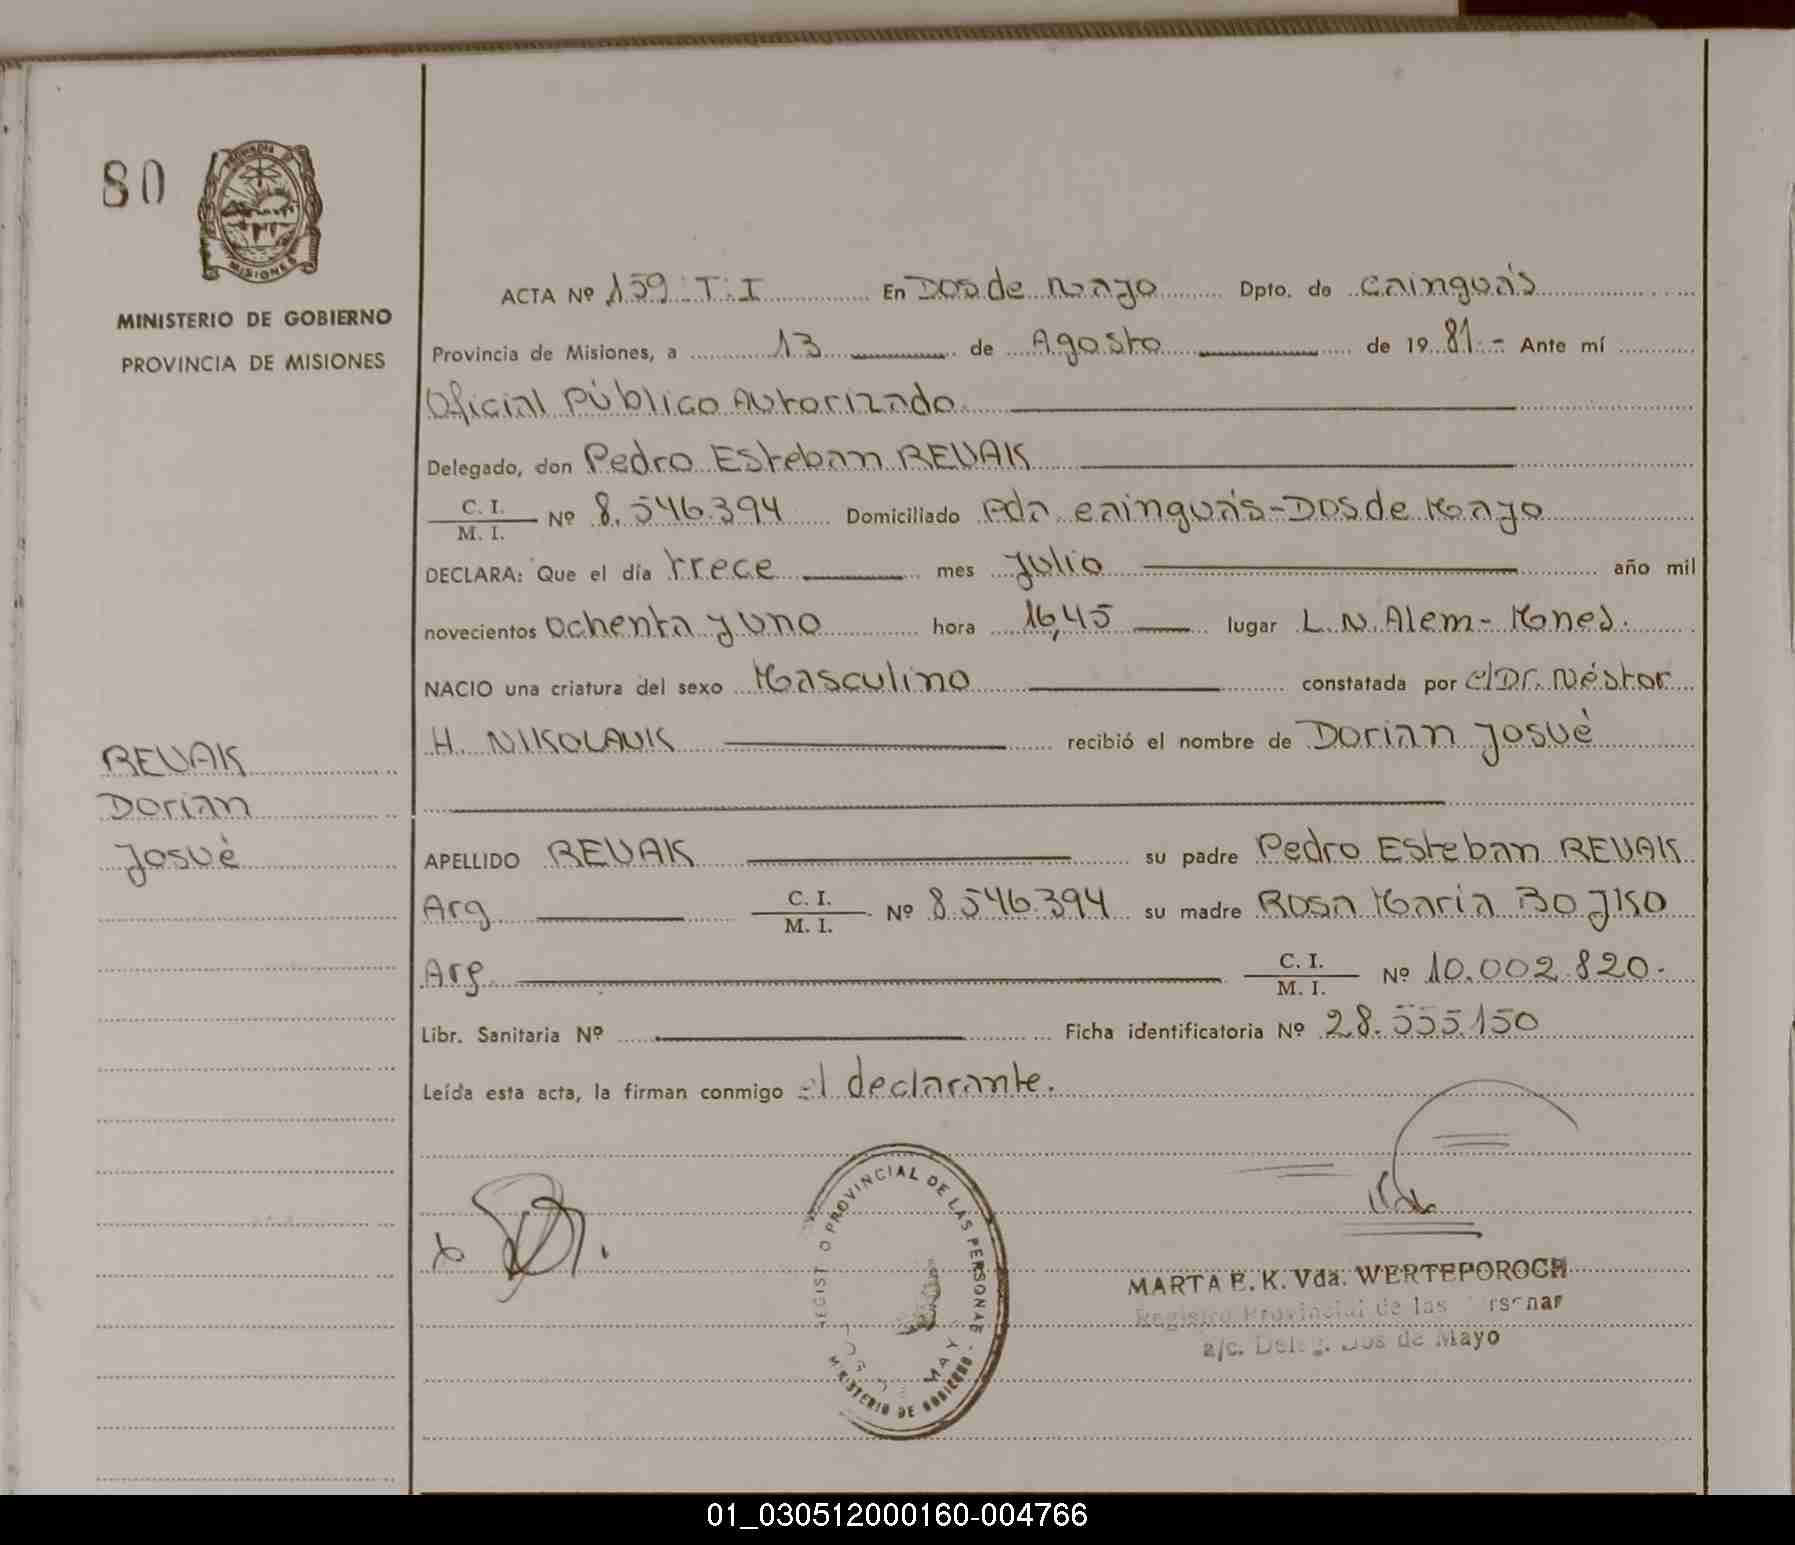 80
PROVINCIA DE
MISIONES
MINISTERIO DE GOBIERNO
PROVINCIA DE MISIONES
REVAK
Dorian
Josué
ACTA Nº 159 : T : I En Dos de Mayo Dpto. de Cainguás
Provincia de Misiones, a 13 de Agosto de 1981.- Ante mí
Oficial Público Autorizado
Delegado, don Pedro Esteban REVAK
C. I.
M. I. Nº 8.546.394 Domiciliado Pda Cainguás-Dos de Mayo
DECLARA: Que el día trece mes Julio año mil
novecientos ochenta y uno hora 16,45 lugar L.N. Alem- Mnes.
NACIO una criatura del sexo Masculino constatada por el Dr. Néstor
H. NIKOLAUK recibió el nombre de Dorian Josué
APELLIDO REVAK su padre Pedro Esteban REVAK
Arg C. I.
M. I. Nº 8.546.394 su madre Rosa María BOJKO
Arg. C. I.
M. I. Nº 10.002.820.
Libr. Sanitaria Nº Ficha identificatoria Nº 28.555.150
Leída esta acta, la firman conmigo el declarante.
REGISTRO PROVINCIAL DE LAS PERSONAS
MINISTERIO DE GOBIERNO
MAYO
MARTA E. K. Vda. WERTEPOROCH
Registro Provincial de las Personas
a/c. Deleg. Dos de Mayo
01_030512000160-004766